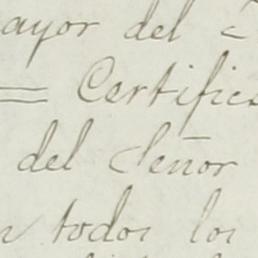 ayor del
= Certific
del Señor
todos los